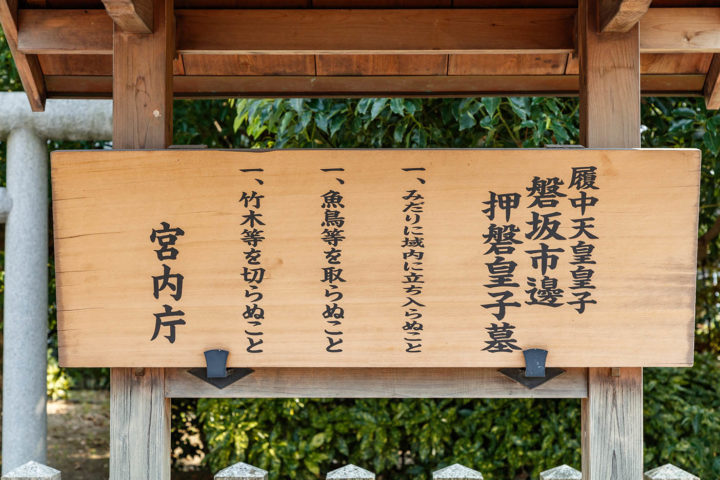 履中天皇皇子
磐坂市邊
押磐皇子墓
一、みだりに域内に立ち入らぬこと
一、魚鳥等を取らぬこと
一、竹木等を切らぬこと
宮内庁